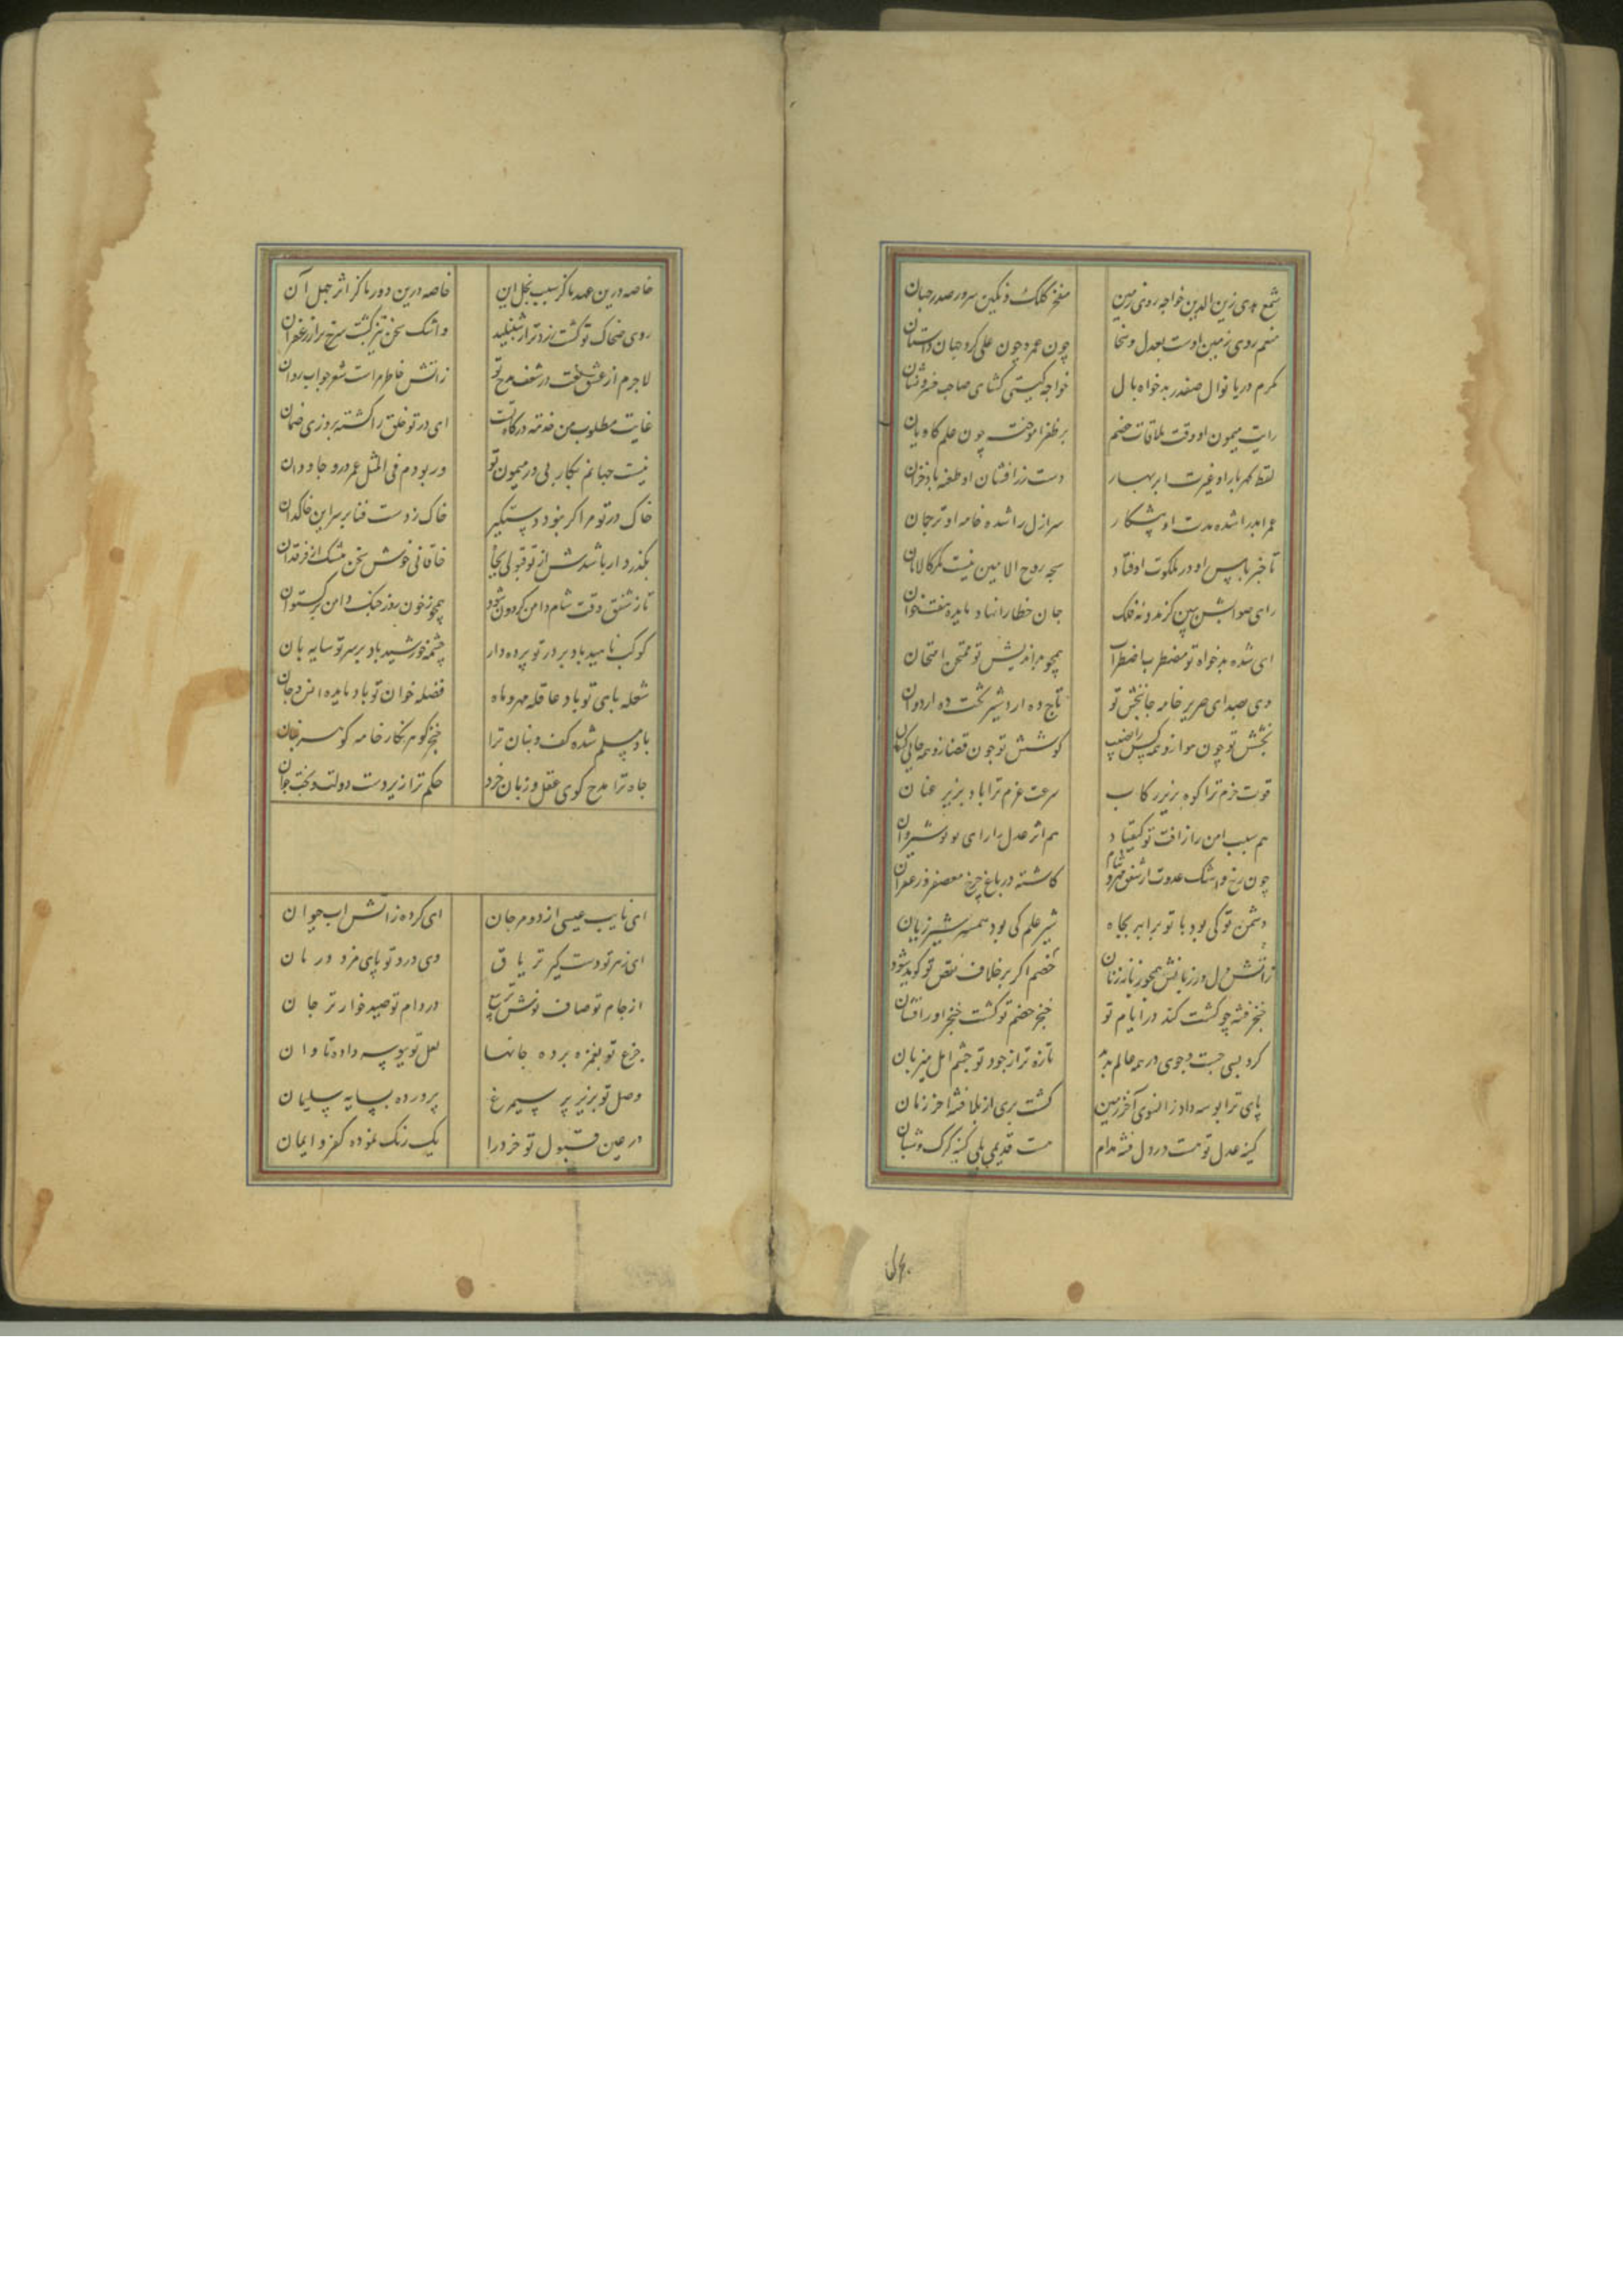 شمع هدی زین الدین خواجه روی زمین
مفخر کلک و نکین سرور صدر جهان
منعم روی زمین اوست بعدل و سخا
چون عمر و چون علی کرد جهان داستان
مکرم دریا نوال صفدر بدخواه مال
خواجه کیتی کشای صاحب خسرو نشان
رایت میمون او وقت ملاقات خصم
بر ظفر آموخت چون علم کاویان
لفظ کهربار او غیرت ابر بهار
دست زر افشان او طعنه باد خزان
عمر ابد را شده مدت او پیشکار
سر ازل را شده خامه او ترجمان
تا خبر باس او در ملکوت اوفتاد
سبحه روح الامین نیست مکر الامان
رای صوابش ببین کز مدد نه فلک
جان خطا را نهاد مایده هفتخوان
ای شده بدخواه تو مضطرب اضطراب
همچو بداندیش تو ممتحن امتحان
وی صدای صریر خامه جانبخش تو
تاج ده اردشیر تخت ده اردوان
بخشش تو چون هوا زو همه کس را نصیب
کوشش تو چون قضا زو همه جایی
قوت حزم ترا کوه بزیر رکاب
سرعت عزم ترا باد بزیر عنان
هم سبب امن را رافت تو کیقباد
هم اثر عدل را رای تو نوشیروان
چون رخ و اشک عدوت از شفق مهر و شام
کاشته در باغ چرخ معصفر و زعفران
دشمن تو کی بود با تو برابر بجاه
شیر علم کی بود همسر شیر ژیان
خصم اکر بر خلاف نقص تو کوید شود
ز آتش دل در زبانش همچو زبانه زنان
خنجر فتنه چو کشت کند در ایام تو
خنجر خصم تو کشت خنجر او را فسان
کرد بسی جست و جوی در همه عالم
تازه تر از جود تو چشم امل میزبان
پای ترا بوسه داد زانسوی آخر زمین
کشت بری از بلا فتنه آخر زمان
کینه عدل تو هست در دل فتنه مدام
هست قدیمی بلی کینه کرک و شبان
خاصه درین عهد ما کز سبب بخل این
خاصه درین دور ما کز اثر جهل آن
روی ضحاک تو کشت زردتر از شنبلید
و اشک سخن نیز کشت سرخ تر از زعفران
لاجرم از عشق نعت در شغف مدح تو
ز آتش خاطر مراست شعر چو آب روان
غایت مطلوب من خدمت درکاه تست
ای در تو خلق را کشته بروزی ضمان
نیست جهانم بکار بی در میمون تو
ور بودم فی المثل عمر درو جاودان
خاک در تو مرا کر نبود دستکیر
خاک ز دست فنا بر سر این خاکدان
بکذرد ار باشدش از تو قبولی بجا
خاقانی خوش سخن بیشک از فرقدان
تا ز شفق وقت شام دامن کردون شود
همچو ز خون روز جنک دامن برکستوان
کوکب ناهید باد بر در تو پرده دار
چشمه خورشید باد بر سر تو سایه بان
شعله باهی تو باد عاقله مهر و ماه
فضله خوان تو باد مایده انس و جان
باد مسلم شده کف و بنان ترا
خنجر کوهر نکار خامه کوهر فشان
جاه ترا مدح کوی عقل و زبان خرد
حکم ترا زیر دست دولت و بخت جوان
ای نایب عیسی از دو مرجان
ای کرده ز آتش آب حیوان
ای زهر تو دست کیر تریاق
وی درد تو پای مزد درمان
از جام تو صاف نوش تریاق
در دام تو صید خوارتر جان
جزع تو بغمزه برده جانها
لعل تو ببوسه داده تاوان
وصل تو بزیر پر سیمرغ
پرورده بسایه سلیمان
در عین قبول تو خرد را
یک رنک نموده کفر و ایمان